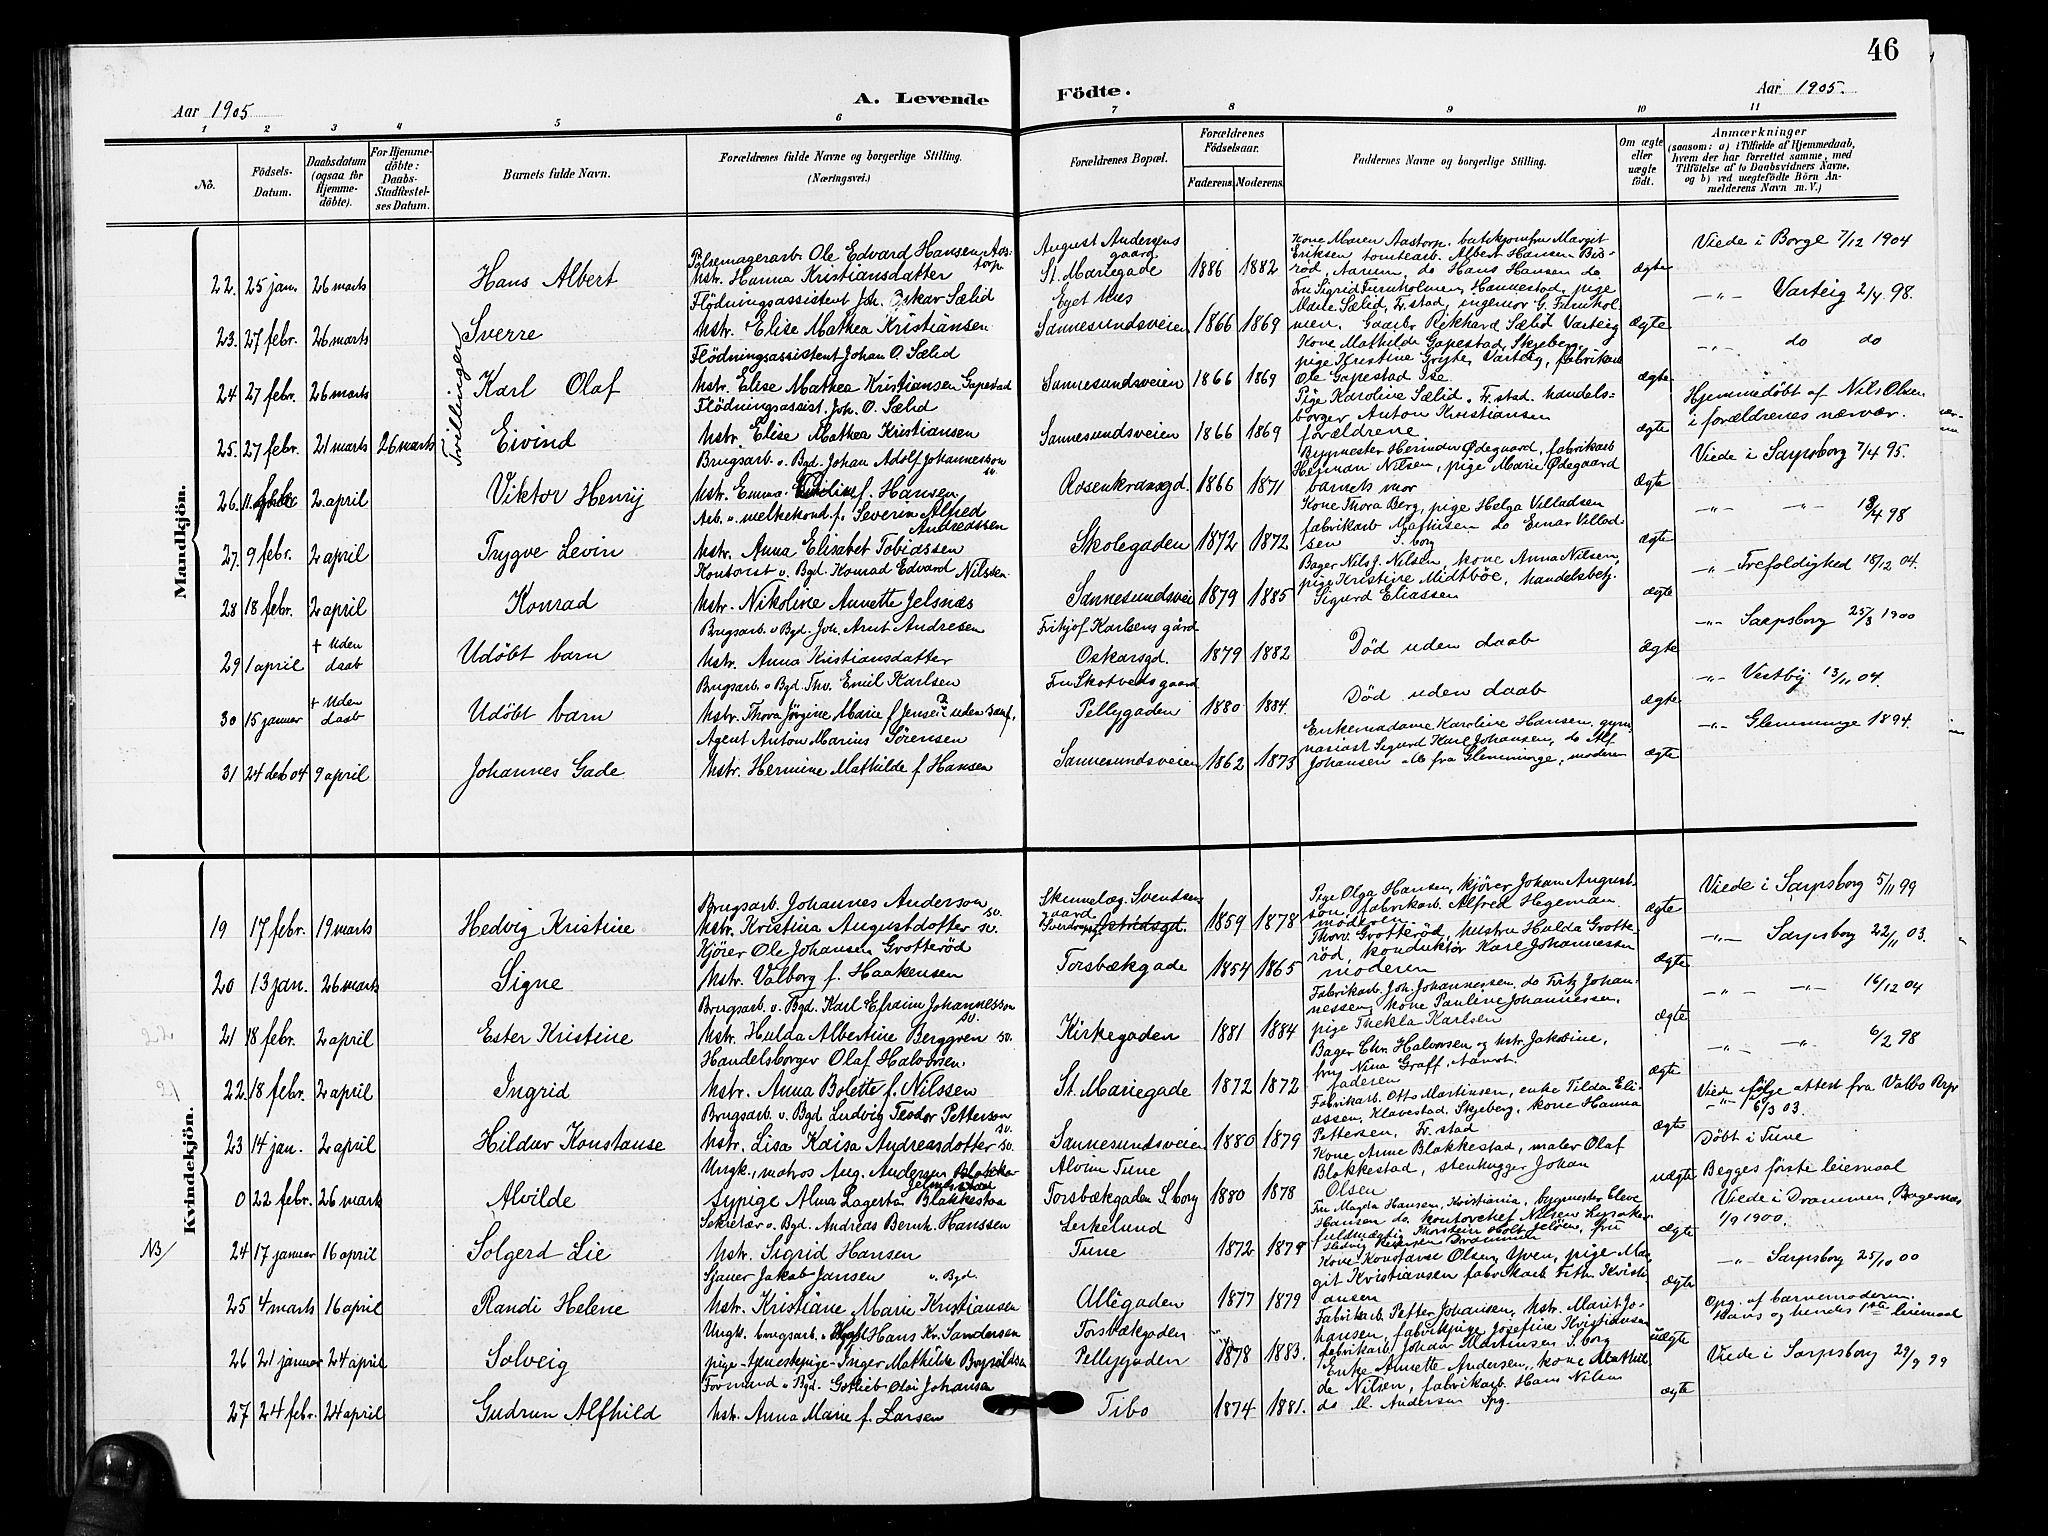 46
Aar 1905
A. Levende Födte.
Aar 1905.
1 2 3 4 5 6 7 8 9 10 11
No.
Födsels-Datum.
Daabsdatum (ogsaa for Hjemme-döbte).
For Hjemme-döbte: Daabs-Stadfæstel-ses Datum.
Barnets fulde Navn.
Forældrenes fulde Navne og borgerlige Stilling.
(Næringsvei.)
Forældrenes Bopæl.
Forældrenes Födselsaar.
Faderens. Moderens.
Faddernes Navne og borgerlige Stilling.
Om ægte eller uægte födt.
Anmærkninger
(saasom: a) i Tilfælde af Hjemmedaab, hvem der har forrettet samme, med Tilföielse af to Daabsvidners Navne, og b) ved uægtefödte Börn An-melderens Navn m. V.)
Mandkjön.
22. 25 jan. 26 marts Hans Albert
Pølsemagerarb. Ole Edvard Hansen Aas-torp
hstr. Hanna Kristiansdatter
August Andersens gaard
St. Mariegade 1886 1882
Kone Maren Aastorp. butikjomfru Margit
Eriksen tomtearb. Albert Hansen Bis-
rød, Aarum, do Hans Hansen do.
ægte
Viede i Borge 7/12 1904
Tvillinger
23. 27 febr. 26 marts Sverre
Flödningsassistent Joh. Oskar Sælid
hstr. Elise Mathea Kristiansen
Eget hus
Sannesundsveien 1866 1869
Fru Sigrid Furuholmen, Hannestad, pige
Marie Sælid, Fr.stad, ingeniør G. Furuhol
men. Gaarbr. Rikhard Sælid Varteig
ægte
-"- Varteig 2/4 98.
24 27 febr. 26 marts Karl Olaf
Flödningsassistent Johan O. Sælid
hstr. Elise Mathea Kristiansen Gapestad
Sannesundsveien 1866 1869
Kone Mathilda Gapestad, Skjeberg,
pige Kristine Gryte, Varteig, fabrikarb
Ole Gapestad Ise
ægte
-"- do do
25. 27 febr. 21 marts 26 marts Eivind
Flödningsassist. Joh. O. Sælid
hstr. Elise Mathea Kristiansen
Sannesundsveien 1866 1869
Pige Karoline Sælid, Fr.stad. handels-
borger Anton Kristiansen
forældrene
ægte
Hjemmedöbt af Nils Olsen
i forældrenes nærvær.
26. 11 2 april Viktor Henry
Brugsarb. v. Bgd. Johan Adolf Johannesson sv.
hstr. Emma f. Hansen
Rosenkransgd. 1866 1871
Bygmester Ødegaard, fabrikarb
Herman Nilsen, pige Marie Ødegaard
barnets mor
ægte
Viede i Sarpsborg 7/4 95.
27. 9 febr. 2 april Trygve Levin
Arb. v. melkekond.f. Severin Alfred
Andreassen
hstr. Anna Elisabet Tobiassen
Skolegaden 1872 1872
Kone Thora Berg, pige Helga Villadsen
fabrikarb Mathisen do Einar Villad-
sen S.borg
ægte
-"- -"- /4 98
28 18 febr. 2 april Konrad
Kontorist v. Bgd. Konrad Edvard Nilssen
hstr. Nikoline Annette Jelsnæs
Sannesundsvei 1879 1885
Bager Nils J. Nilsen, kone Anna Nilsen,
pige Kristine Midtböe, handelsbetj.
Sigurd Eliassen
ægte
-"- Trefoldighed 18/12 04.
29 1 april † Uden daab Udöbt barn
Brugsarb. v. Bgd. Joh. Arnt Andresen
hstr. Anna Kristiansdatter
Frithjof Karlsens gård
Oskarsgd. 1879 1882
Död uden daab
ægte
-"- Sarpsborg 25/3 1900
30 15 januar † Uden daab Udöbt barn
Brugsarb. v Bgd. Thv. Emil Karlsen
hstr. Thora Jörgine Marie f. Jensen ? uden samf.
Fru Skotveds gaard
Pellygaden 1880 1884.
Död uden daab
ægte
-"- Vestby 13/11 04.
31 24 des 04 9 april Johannes Gade
Agent Anton Marius Sørensen
hstr. Hermine Mathilde f. Hansen
Sannesundsveien 1862 1873
Enkemadame Karoline Hansen, gym-
nasiast Sigurd Karl Johansen, do Alf
Johansen alle fra Glemminge, moderen
ægte
-"- Glemminge 1894.
Kvindekjön.
19 17 febr. 19 marts Hedvig Kristine
Brugsarb. Johannes Anderson sv.
hstr. Kristina Augustdotter sv.
Skinnelæg. Svendsens gaard
1859 1878
Pige Olga Hansen, kjörer Johan August-
son, fabrikarb. Alfred Hegeman.
moderen
ægte
Viede i Sarpsborg 5/11 99
20 13 jan. 26 marts Signe
Kjörer Ole Johansen Grotteröd
hstr. Valborg f. Haakensen
Torsbækgade 1854 1865
Thorv. Grotteröd, hustru Hulda Grotte-
röd, konduktör Karl Johannessen
moderen
ægte
-"- Sarpsborg 22/11 03.
22
21 18 febr. 2 april Ester Kristine
Brugsarb. v. Bgd. Karl Efraim Johannesson sv.
hstr. Hulda Albertine Berggren sv.
Kirkegaden 1881 1884
Fabrikarb. Joh. Johannessen, do Fritz Johan-
nessen, kone Pauline Johannessen,
pige Thekla Karlsen
ægte
-"- -"- 16/12 04
21
22 18 febr. 2 april Ingrid
Handelsborger Olaf Halvorsen
hstr. Anna Bolette f. Nilssen
St. Mariegade 1872 1872
Bager Chr. Halvorsen og hstr. Jakobine,
frøy Nina Graff,
faderen
ægte
-"- -"- 6/2 98
23 14 jan. 2 april Hildur Konstanse
Brugsarb. v. Bgd Ludvig Teodor Petterson sv.
hstr. Lisa Kaisa Andreasdotter sv.
Sannesundsveien 1880 1879
Fabrikarb. Otto Martinsen, enke Tilda Eli-
assen, Klavestad, Skjeberg, kone Hanna
Pettersen, Fr.stad
ægte
Viede ifølge attest fra Valbo
6/3 03.
0 22 febr. 26 marts Alvilde
Ungk., matros Aug. Andersen
sypige Alma Lagerta Blakkestad
Alvim Tune
Torsbækgaden S.borg 1880 1878
Kone Anne Blakkestad, maler Olaf
Blakkestad, stenhugger Johan
Olsen
uægte
Döbt i Tune
Begges förste leiermaal
NB/
24 17 januar 16 april Solgerd Lie
Sekretær v. Bgd. Andreas Bernh. Hanssen
hstr. Sigrid Hansen
Lerkelund
Tune 1872 1879
Fru Magda Hansen, Kristiania, bygmester Eleve
Hansen do. kontorchef Nilsen Lysaker
fuldmægtig Thorstein Holst Jelöen, fru
Hedvig Drammen
ægte
Viede i Drammen, Bragernæs
1/9 1900.
25 4 marts 16 april Randi Helene
Sjauer Jakob Jansen v. Bgd.
hstr. Kristiane Marie Kristiansen
Allégaden 1877 1879
Kone Konstanse Olsen, Yven, pige Mar-
git Kristiansen fabrikarb. Kristi-
ansen
ægte
-"- Sarpsborg 25/10 00
26 21 januar 24 april Solveig
Ungk. brugsarb. v. Hans Kr. Sandersen
pige-tjenestepige-Inger Mathilde
Torsbækgaden
Pellygaden 1878 1883.
Fabrikarb. Petter Johansen, hstr. Marit Jo-
hansen, fabrikpige Josefine Kristiansen
fabrikarb. Johan Martinsen S.borg
uægte
Opg. af barnemoderen.
Hans og hendes 1ste leiermaal
27 24 febr. 24 april Gudrun Alfhild
Formand v. Bgd. Gotlieb Olai Johansen
hstr. Anna Marie f. Larsen
Tibo 1874 1881.
Enke Annette Andersen, kone Mathil
de Nilsen, fabrikarb. Hans Nilsen
do M. Andersen Spg.
ægte
Viede i Sarpsborg 29/9 99